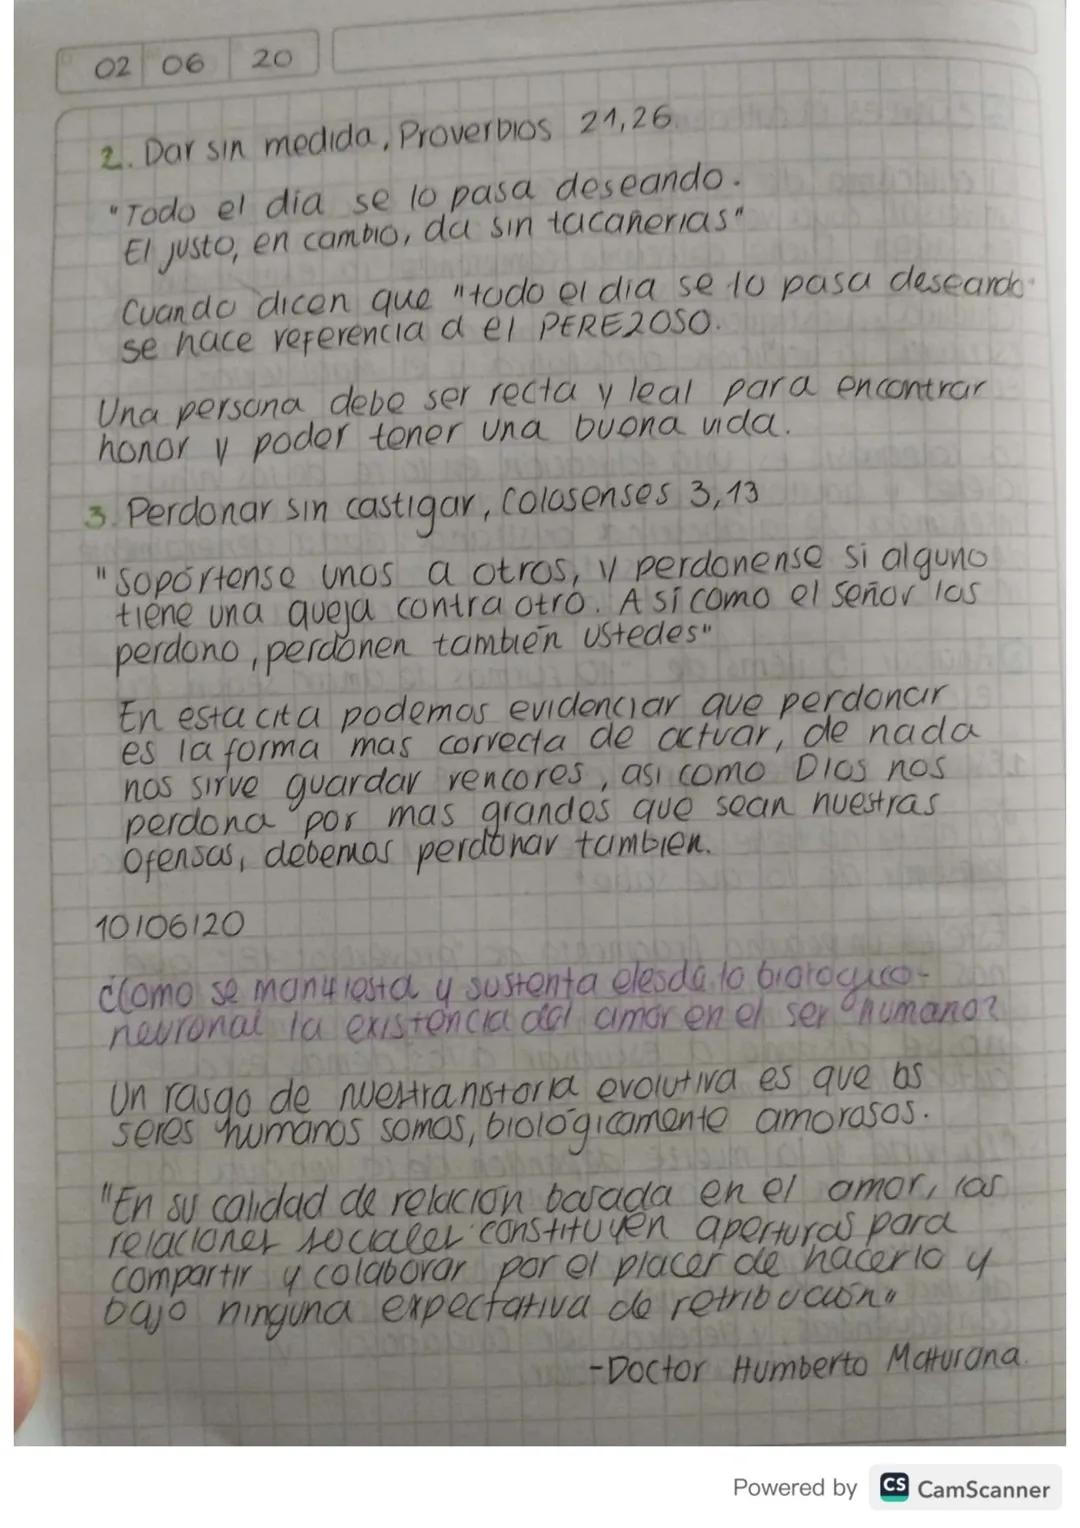 02 06 20
2. Dar sin medida, Proverbios 21,26.
"Todo el dia se lo pasa deseando.
El justo, en cambio, da sin tacañerias"
Cuando dicen que "todo el dia se lo pasa deseando"
se hace referencia a el PEREZOSO.
Una persona debe ser recta y leal para encontrar
honor y poder tener una buena vida.
3. Perdonar sin castigar, Colosenses 3,13
"Sopórtense unos a otros, y perdonense si alguno
tiene una queja contra otro. Asi como el señor los
perdono, perdonen también ustedes"
En esta cita podemos evidenciar que perdonar
es la forma mas correcta de actuar, de nada
nos sirve guardar rencores, asi como Dios nos
perdona por mas grandes que sean nuestras
Ofensas, debemos perdonar tambien.
10/06/20
¿Como se manifiesta y sustenta desde lo biologico-
neuronal la existencia del amor en el ser humano?
Un rasgo de nuestra historia evolutiva es que los
seres humanos somos, biológicamente amorosos.
"En su calidad de relación basada en el amor, las
relaciones sociales constituyen aperturas para
compartir y colaborar por el placer de hacerlo y
bajo ninguna expectativa de retribución"
-Doctor Humberto Maturana.
Powered by CS CamScanner